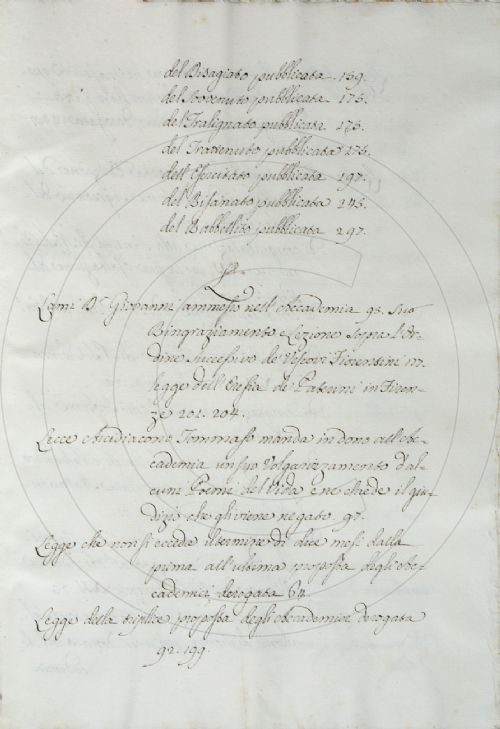 del Disagiato pubblicata. 159.
del Sovvenuto pubblicata 175.
del Tralignato pubblicata 175.
del Trattenuto pubblicata 275.
dell'Esercitato pubblicata 297.
del Risanato pubblicata 245.
del Rabbellito pubblicata 297.
L
Lami Dr. Giovanni ammesso nell'Accademia 93. Suo
Ringraziamento e Lezione sopra l'Or-
dine successivo de' Vescovi Fiorentini 117.
legge dell'Eresia de' Paterini in Firen-
ze 201. 204.
Lecce Arcidiacono Tommaso manda in dono all'Ac-
cademia un suo Volgarizzamento d'al-
cuni Poemi del Vida e ne chiede il giu-
dizio che gli viene negato. 97.
Legge che non si ecceda il termine di due mesi dalla
prima all'ultima proposta degli Ac-
cademici derogata 64.
Legge della triplice proposta degli Accademici derogata
92. 199.